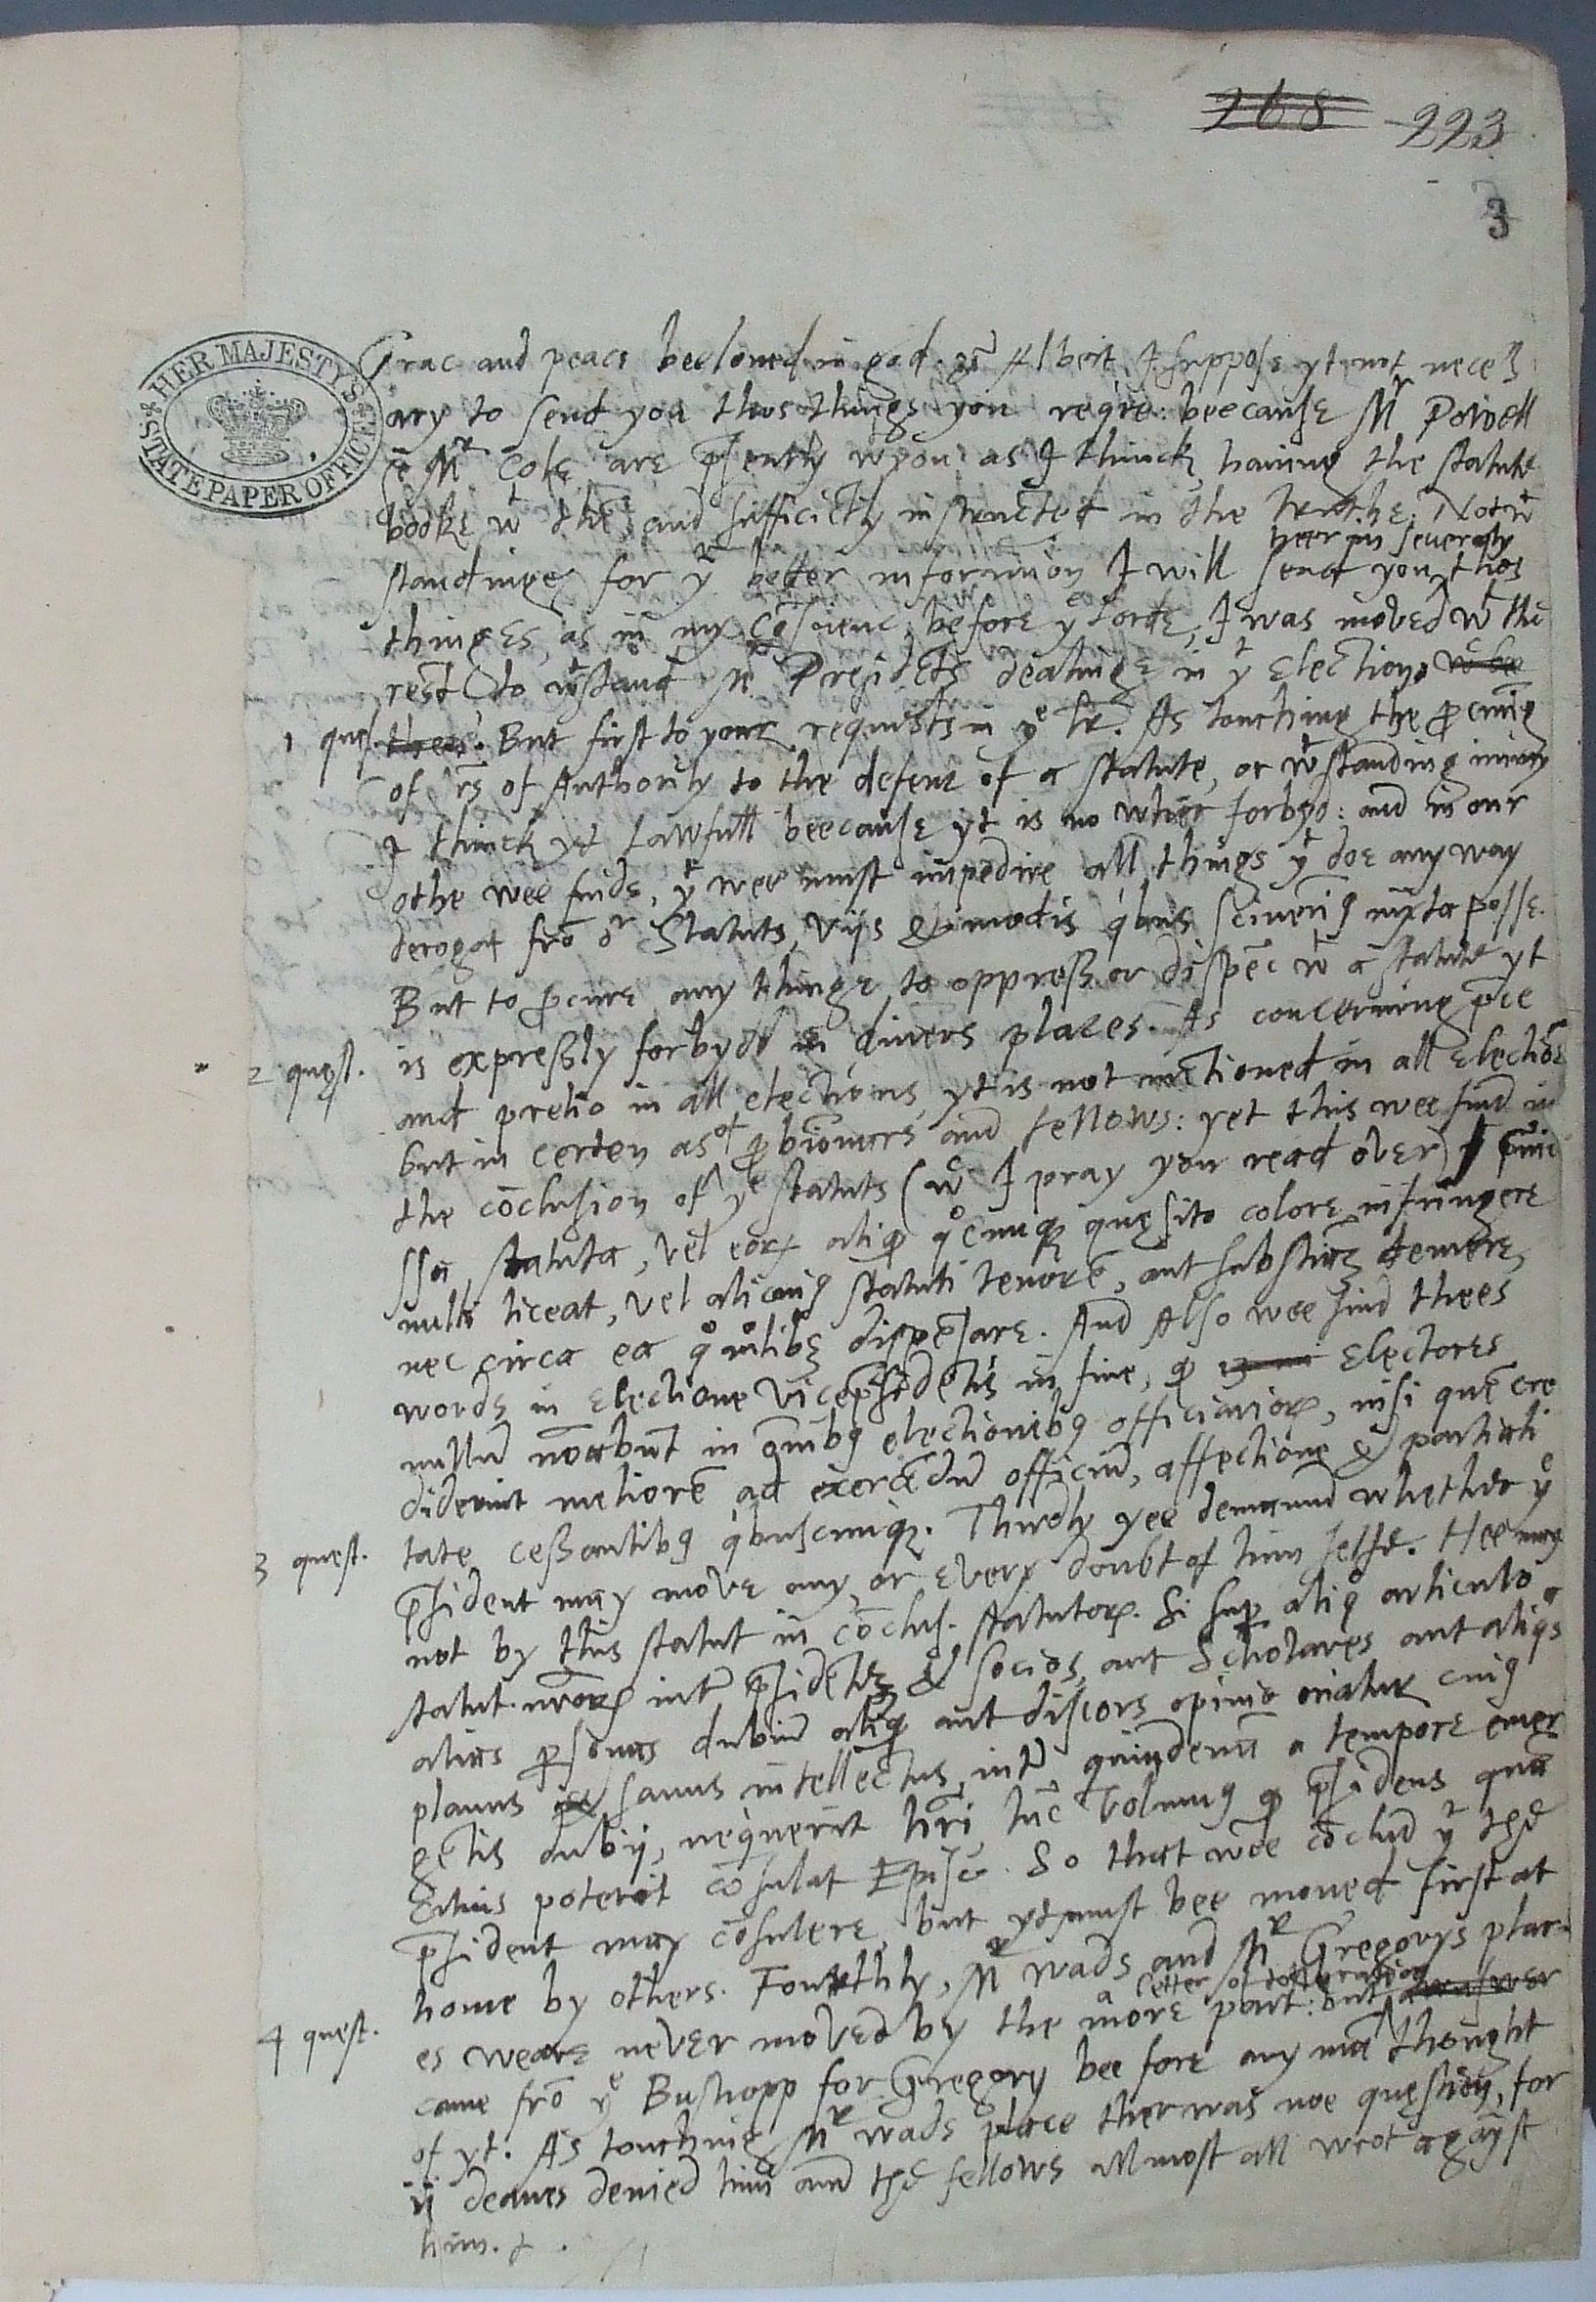 268 223
3
HER MAJESTY'S STATE PAPER OFFICE
Grac and peace beeloved in god. Albeit I suppose yt not necess
ary to send you thos things you reqire: beecause Mr Powell
& Mr Cole are psently wt you as I thinck, having the statute
booke wt thē and sufficiētly instructed in the truthe: Notwt
standinge for yr better informion I will send you thos
heer in severally
thinges, as in my cōscienc, before ye Lorde, I was moved wt the
rest to wtstand Mr Presidēts dealinge in yt election
1 quest. But first to your requests in ye lr. As touching the pcuring
of lrs of Authority to the defenc of a statute, or wtstanding iniury
I thinck yt Lawfull beecause yt is no wher forbyd: and in our
othe wee finde, yt wee must impedire all things yt doe any way
derogat frō or Statuts, viis et modis qbus sciverig iuxta posse.
But to pcure any thinge to oppress or dispēc wt a statute yt
is expressly forbydd in divers places. As concerning pce
2 quest.
and pretio in all elections, yt is not mētioned in all electiōs
but in certen as of pbioners and fellows: yet this wee find in
the cōclusion of ye statuts (wc I pray you read over)
ssa statuta, vel eorū aliqd qcunq quęsito colore infringere
nulli liceat, vel alicuig statuti tenorē, aut substātiā temere,
nec circa ea qmlibet dispēsare. And Also wee find thees
words in electione vicepsidētis in fine, qd electores
nullū noābunt in oīnibg electionibg officiariorū, nisi quē cre
diderint meliorē ad exercēdū officiū, affectione et partiali
tate cessantibg qbuscunq. Thirdly yee demaund whether ye
3 quest.
psident may move any, or every doubt of him selfe. Hee may
not by this statut in cōclus. statutorū. Si sup aliqo articulo
statut. nrorū inter psidētē et socios, aut Scholares aut aliqs
alias psonas dubiū aliqd aut discors opinio oriatur cuig
planus sanus intellectus, intra quindenā a tempore emer
gētis dubii, nequerit hri, tūc volumg qd psidens quā
citius poterit cōsulat Episc. So that wee cōclud yt the
psident may cōsulere, but yt must bee moved first at
home by others. Fourthly, Mr Wads and Mr Gregorys plac
4 quest.
es weare never moved by the more part: but
a letter of toleration
came frō ye Bushopp for Gregory bee fore any mā thought
of yt. As touching Mr Wads place ther was noe questiō, for
ii deanes denied him and the fellows allmost all wrot agāyst
him.